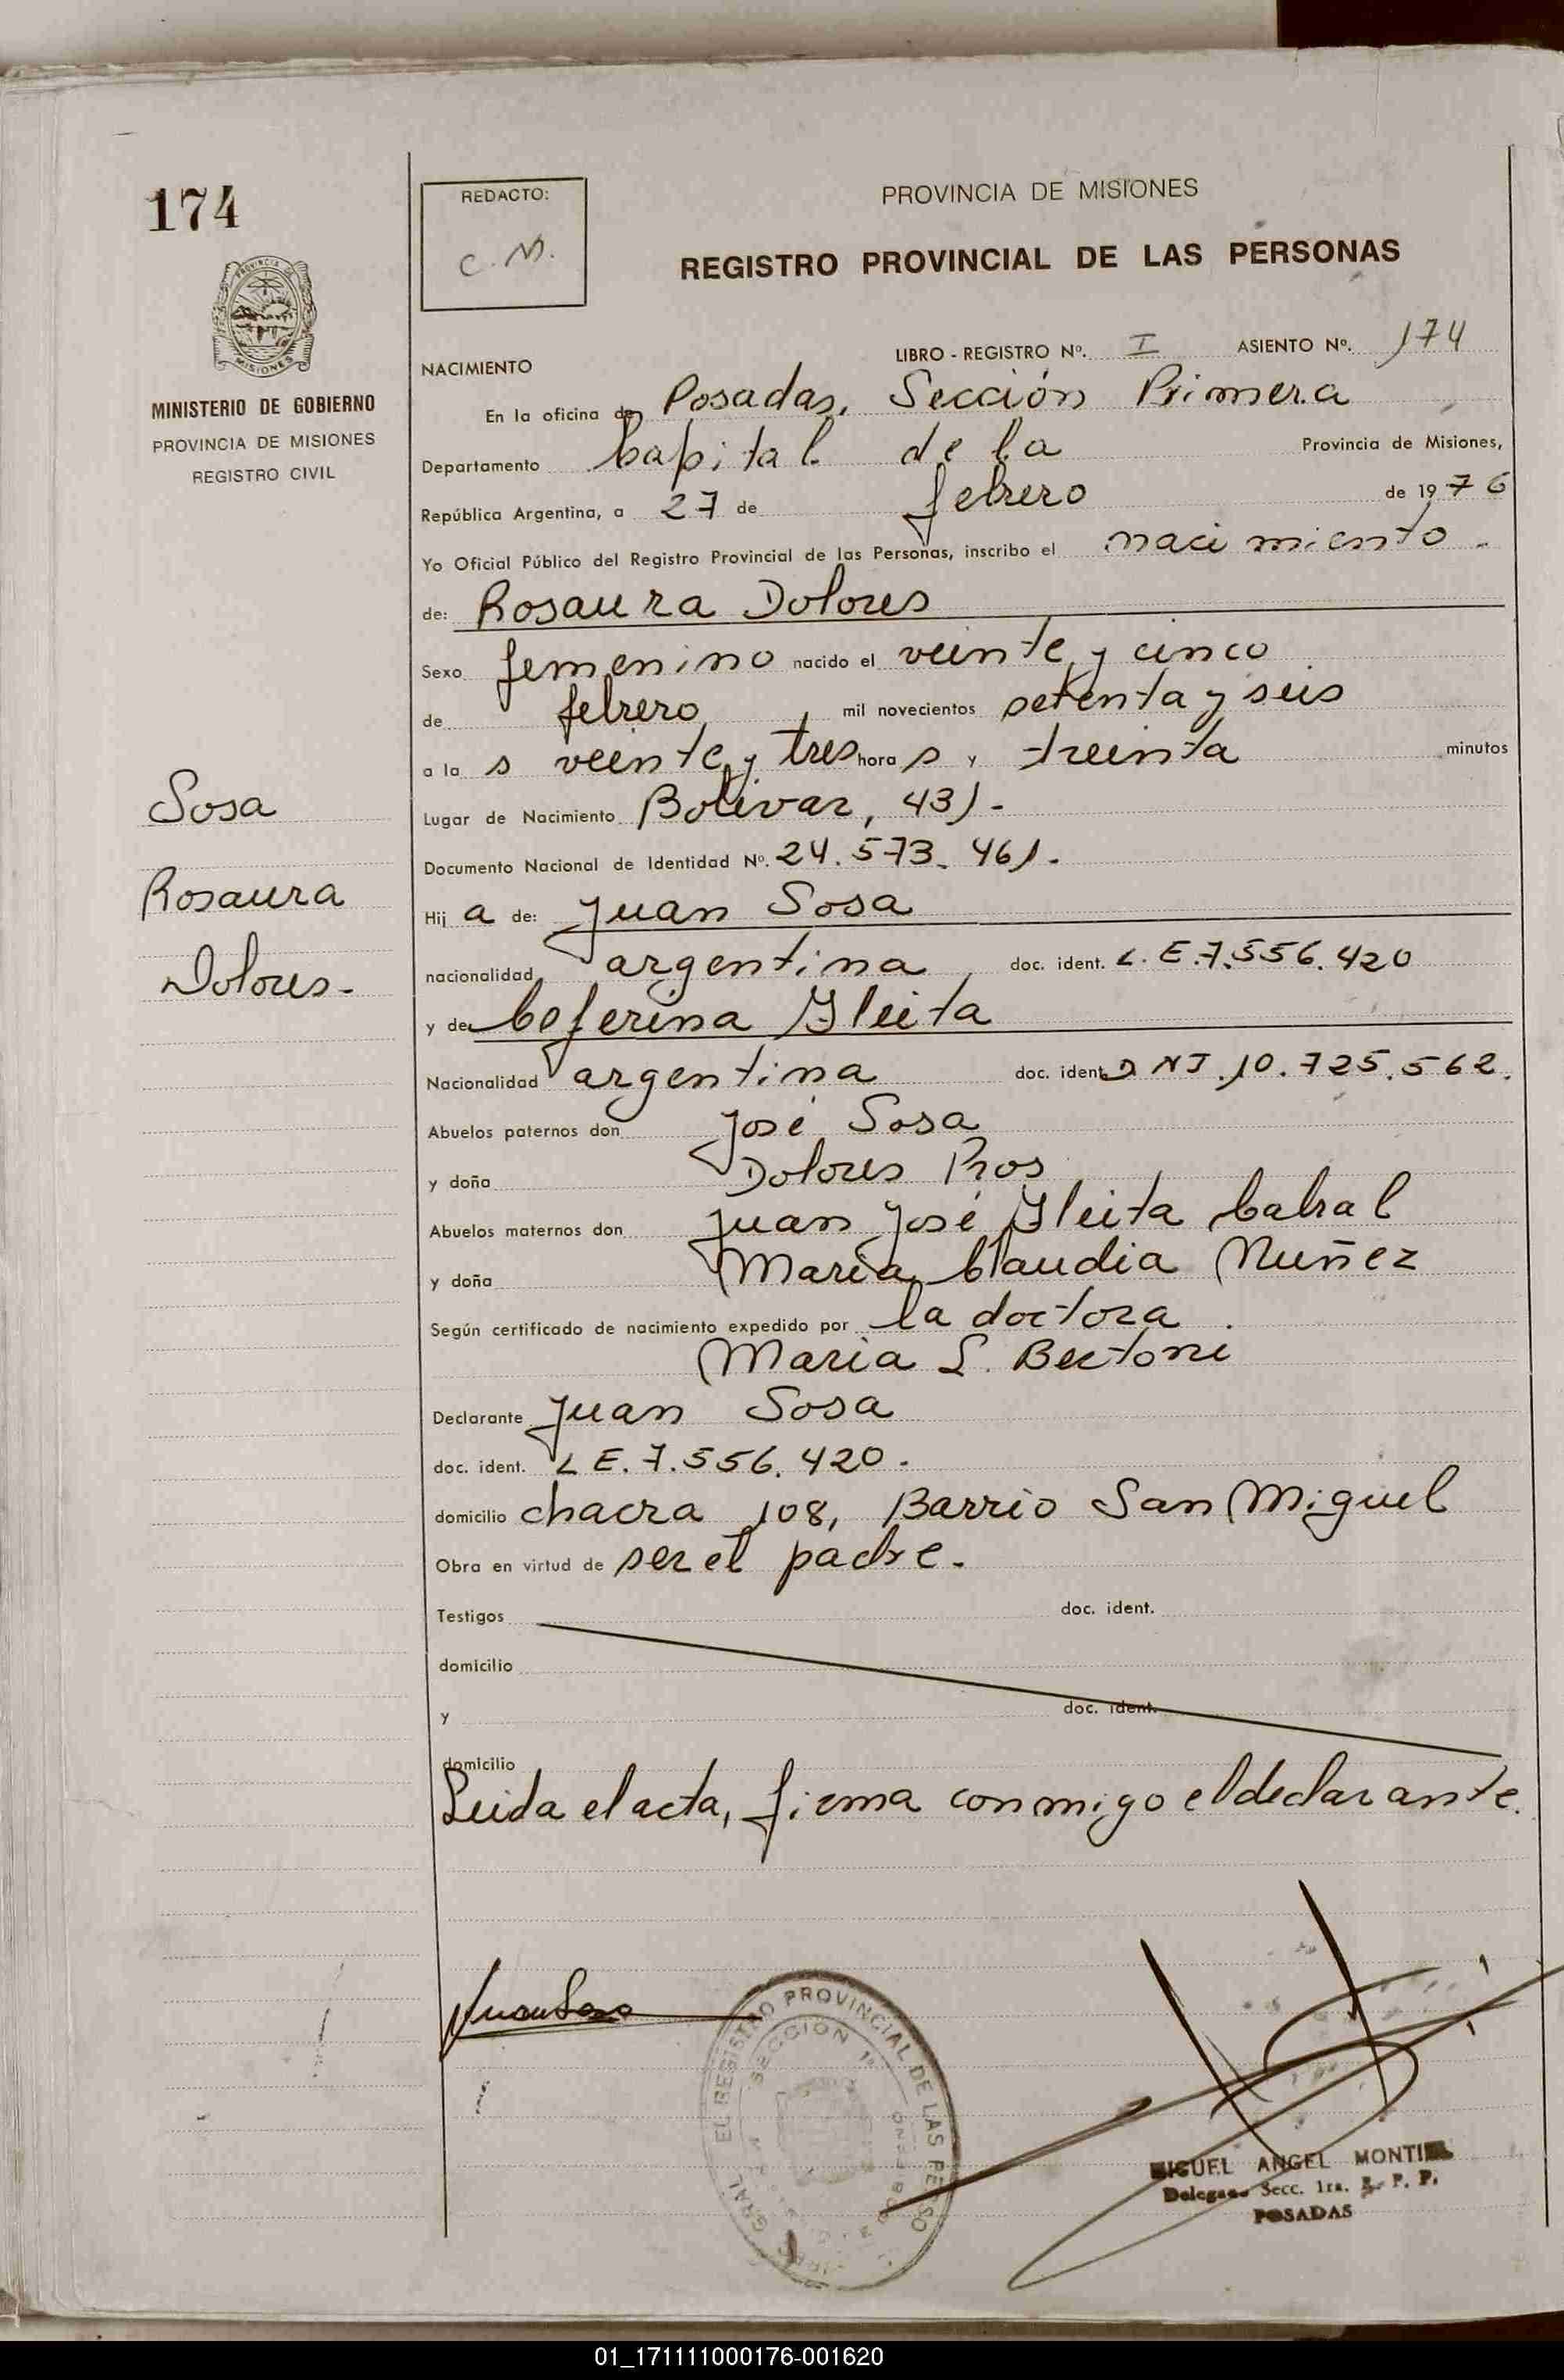 174
REDACTO:
C. M.
PROVINCIA DE MISIONES
REGISTRO PROVINCIAL DE LAS PERSONAS
MISIONES
MINISTERIO DE GOBIERNO
PROVINCIA DE MISIONES
REGISTRO CIVIL
LIBRO - REGISTRO Nº. I ASIENTO Nº. 174
NACIMIENTO
En la oficina de Posadas, Sección Primera
Departamento Capital de la Provincia de Misiones,
República Argentina, a 27 de febrero de 1976
Yo Oficial Público del Registro Provincial de las Personas, inscribo el nacimiento
de: Rosaura Dolores
Sexo femenino nacido el veinte y cinco
de febrero mil novecientos setenta y seis
a la s veinte y tres hora s y treinta minutos
Lugar de Nacimiento Bolivar, 431 -
Documento Nacional de Identidad Nº. 24.573.461.
Hij a de: Juan Sosa
nacionalidad argentina doc. ident. L.E.7.556.420
y de Ceferina Gleita
Nacionalidad argentina doc. ident. DNI.10.725.562.
Abuelos paternos don José Sosa
y doña Dolores Pros
Abuelos maternos don Juan José Gleita Cabral
y doña María Claudia Nuñez
Según certificado de nacimiento expedido por la doctora
María L. Bertoni
Declarante Juan Sosa
doc. ident. L E. 7.556.420.
domicilio chacra 108, Barrio San Miguel
Obra en virtud de ser el padre.
Testigos doc. ident.
domicilio
y doc. ident.
domicilio
Leida el acta, firma conmigo el declarante.
Sosa
Rosaura
Dolores-
Juan Sosa
EL REGISTRO PROVINCIAL DE LAS PERSO
SECCION 1ª
MIGUEL ANGEL MONTIEL
Delegado Secc. 1ra. R. P. P.
POSADAS
01_171111000176-001620